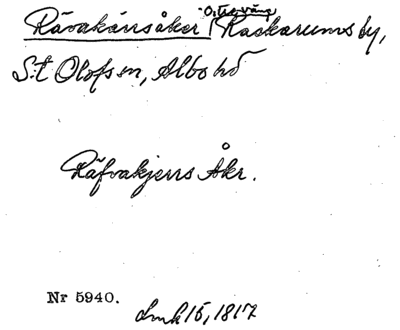 Rävakärsåker, Östrevång Raskarums by,
S:t Olofs sn, Albo hd
Räfvakjerrs Åkr.
Nr 5940.
Lmk 15, 1817